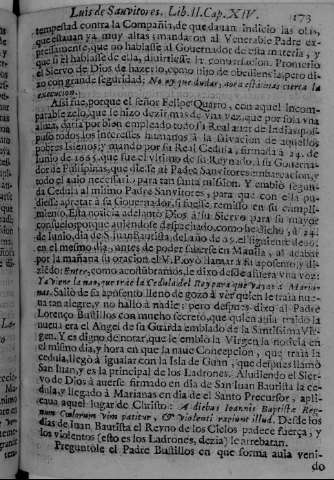 Luis de Sanvitores. Lib. II. Cap. XIV. 173
tempestad contra la Compañia, de que davan indicio las olas,
que estavan ya muy altas; mandaron al Venerable Padre ex-
pressamente, que no hablasse al Governador de esta materia, y
que si el hablasse de ella, divirtiesse la conversacion. Prometiò
el Siervo de Dios de hazerlo, como hijo de obediencia, pero di-
xo con grande seguridad: No ay que dudar, nora està mas cierta la
execucion.
Assi fue, porque el señor Felipe Quarto, con aquel incom-
parable zelo, que le hizo dezir mas de vna vez, que por sola vna
alma, daria por bien empleado todo su Real aver de Indias, pos-
puso todos los interesses humanos à la salvacion de aquellos
pobres Isleños; y mandò por su Real Cedula, firmada à 24. de
Junio de 1665. que fue el vltimo de su Reynado, à su Governa-
dor de Filipinas, que diesse al Padre Sanvitores embarcacion, y
todo el avio necessario para tan santa mission. Y embiò segun-
da Cedula al mismo Padre Sanvitores, para que con ella pu-
diesse apretar à su Governador, si fuesse remisso en su cumpli-
miento. Esta noticia adelantò Dios à su Siervo para su mayor
consuelo; porque aviendose despachado, como he dicho, à 24.
de Junio, dia de S. Juan Bautista, del año de 65. el siguiente de 66.
en el mismo dia, antes de poder saberse en Manila, al acabar
por la mañana su oracion el V. P. oyò llamar à su aposento; y di-
ziendo: Entre, como acostumbramos, le dixo desde afuera vna voz:
Ya viene la nao, que trae la Cedula del Rey para que vayas à Maria-
nas. Saliò de su aposento lleno de gozo à ver quien le traìa nue-
va tan alegre, y no hallò à nadie; pero despues dixo al Padre
Lorenço Bustillos con mucho secreto, que quien avia traìdo la
nueva era el Angel de su Guarda embiado de la Santissima Vir-
gen. Y es digno de notar, que le embiò la Virgen la noticia en
el mismo dia, y hora en que la nave Concepcion, que traìa la
cedula, llegò à igualar con la Isla de Guan, que despues llamò
San Juan, y es la principal de los Ladrones. Aludiendo el Sier-
vo de Dios à averse firmado en dia de San Juan Bautista la ce-
dula, y llegado à Marianas en dia de el Santo Precursor, apli-
cava aquel lugar de Christo: A diebus Ioannis Baptistæ Reg-
num Cœlorum vim patitur, & violenti rapiunt illud. Desde los
dias de Juan Bautista el Reyno de los Cielos padece fuerça; y
los violentos (esto es los Ladrones, dezia) le arrebatan.
Preguntòle el Padre Bustillos en que forma avia veni-
do